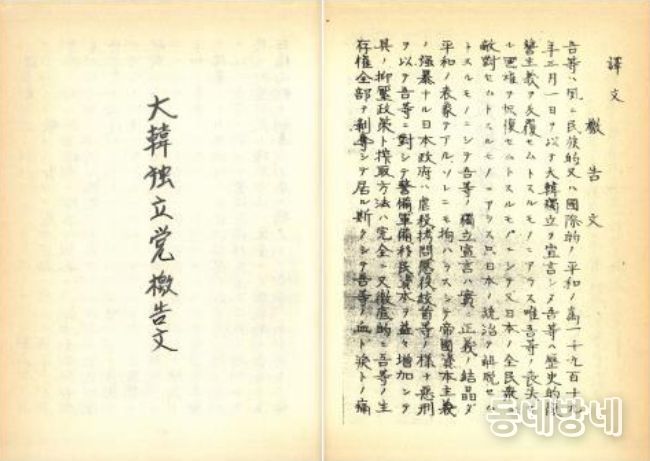 大韓独立党檄告文
譯文
檄告文
吾等ハ夙ニ民族的又ハ國際的ノ平和ノ爲一千九百十九
年三月一日ヲ以テ大韓獨立ヲ宣言シ吾等ハ歴史的復
讐主義ヲ反復セムトスルモノニアラス唯吾等ノ喪失
ヲ恢復セムトスルモノニシテ又日本ノ全民衆ヲ
敵對セムトスルモノニアラス只日本ノ統治ヲ解脱セム
トスルモノニシテ吾等ノ獨立宣言ハ實ニ正義ノ結晶ダ
平和ノ表象テアルソレニモ拘ハラスシテ帝國資本主義
ノ强暴ナル日本政府ハ虐殺拷問惡役絞首等ノ樣惡刑
ヲ以テ吾等ニ對シテ警備軍備移民資本ヲ益々増加シテ
其ノ抑壓政策ト搾取方法ハ完全ニ又徹底的ニ吾等ノ生
存權全部ヲ剥奪シテ居ル斯クシテ吾等ノ血ト淚トノ痛
동네방네